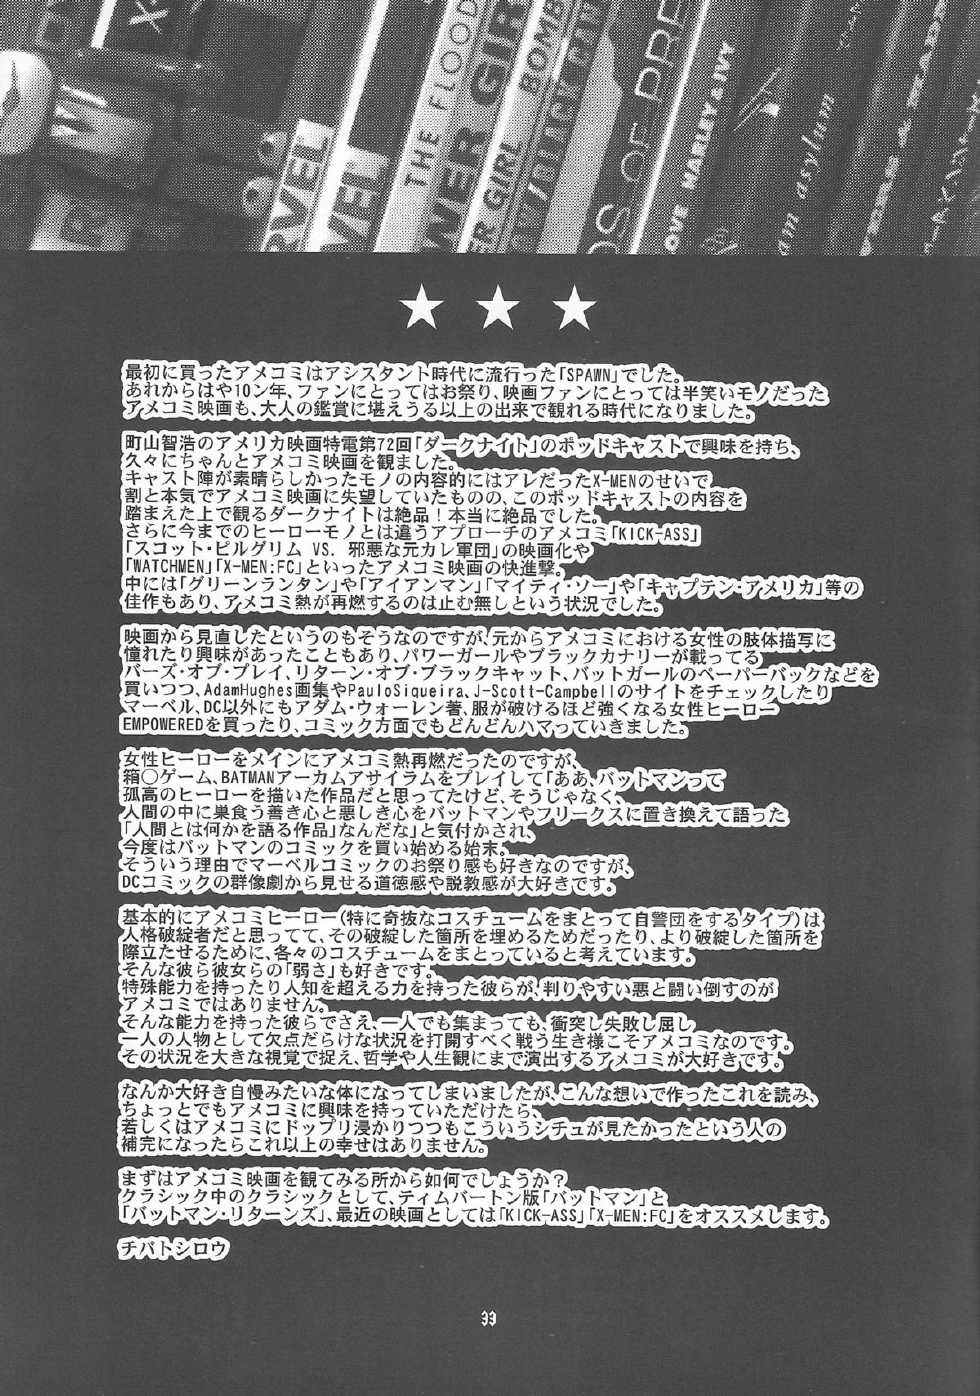 X-
RVEL
VEL
THE FLOOD
WER GIR
ER GIRL BOMB
W/BLACK CAN
OS OF PRE
OVE HARLEY & IVY
am asylum
★ ★ ★
最初に買ったアメコミはアシスタント時代に流行った「SPAWN」でした。
あれからはや10ン年、ファンにとってはお祭り、映画ファンにとっては半笑いモノだった
アメコミ映画も、大人の鑑賞に堪えうる以上の出来で観れる時代になりました。
町山智浩のアメリカ映画特電第72回「ダークナイト」のポッドキャストで興味を持ち、
久々にちゃんとアメコミ映画を観ました。
キャスト陣が素晴らしかったモノの内容的にはアレだったX-MENのせいで
割と本気でアメコミ映画に失望していたものの、このポッドキャストの内容を
踏まえた上で観るダークナイトは絶品！本当に絶品でした。
さらに今までのヒーローモノとは違うアプローチのアメコミ「KICK-ASS」
「スコット・ピルグリム VS. 邪悪な元カレ軍団」の映画化や
「WATCHMEN」「X-MEN:FC」といったアメコミ映画の快進撃。
中には「グリーンランタン」や「アイアンマン」「マイティ・ソー」や「キャプテン・アメリカ」等の
佳作もあり、アメコミ熱が再燃するのは止む無しという状況でした。
映画から見直したというのもそうなのですが、元からアメコミにおける女性の肢体描写に
憧れたり興味があったこともあり、パワーガールやブラックカナリーが載ってる
バーズ・オブ・プレイ、リターン・オブ・ブラックキャット、バットガールのペーパーバックなどを
買いつつ、AdamHughes画集やPauloSiqueira、J-Scott-Campbellのサイトをチェックしたり
マーベル、DC以外にもアダム・ウォーレン著、服が破けるほど強くなる女性ヒーロー
EMPOWEREDを買ったり、コミック方面でもどんどんハマっていきました。
女性ヒーローをメインにアメコミ熱再燃だったのですが、
箱〇ゲーム、BATMANアーカムアサイラムをプレイして「ああ、バットマンって
孤高のヒーローを描いた作品だと思ってたけど、そうじゃなく、
人間の中に巣食う善き心と悪しき心をバットマンやフリークスに置き換えて語った
「人間とは何かを語る作品」なんだな」と気付かされ、
今度はバットマンのコミックを買い始める始末。
そういう理由でマーベルコミックのお祭り感も好きなのですが、
DCコミックの群像劇から見せる道徳感や説教感が大好きです。
基本的にアメコミヒーロー(特に奇抜なコスチュームをまとって自警団をするタイプ)は
人格破綻者だと思ってて、その破綻した箇所を埋めるためだったり、より破綻した箇所を
際立たせるために、各々のコスチュームをまとっていると考えています。
そんな彼ら彼女らの「弱さ」も好きです。
特殊能力を持ったり人知を超える力を持った彼らが、判りやすい悪と闘い倒すのが
アメコミではありません。
そんな能力を持った彼らでさえ、一人でも集まっても、衝突し失敗し屈し
一人の人物として欠点だらけな状況を打開すべく戦う生き様こそアメコミなのです。
その状況を大きな視覚で捉え、哲学や人生観にまで演出するアメコミが大好きです。
なんか大好き自慢みたいな体になってしまいましたが、こんな想いで作ったこれを読み、
ちょっとでもアメコミに興味を持っていただけたら、
若しくはアメコミにドップリ浸かりつつもこういうシチュが見たかったという人の
補完になったらこれ以上の幸せはありません。
まずはアメコミ映画を観てみる所から如何でしょうか？
クラシック中のクラシックとして、ティムバートン版「バットマン」と
「バットマン・リターンズ」、最近の映画としては「KICK-ASS」「X-MEN:FC」をオススメします。
チバトシロウ
33